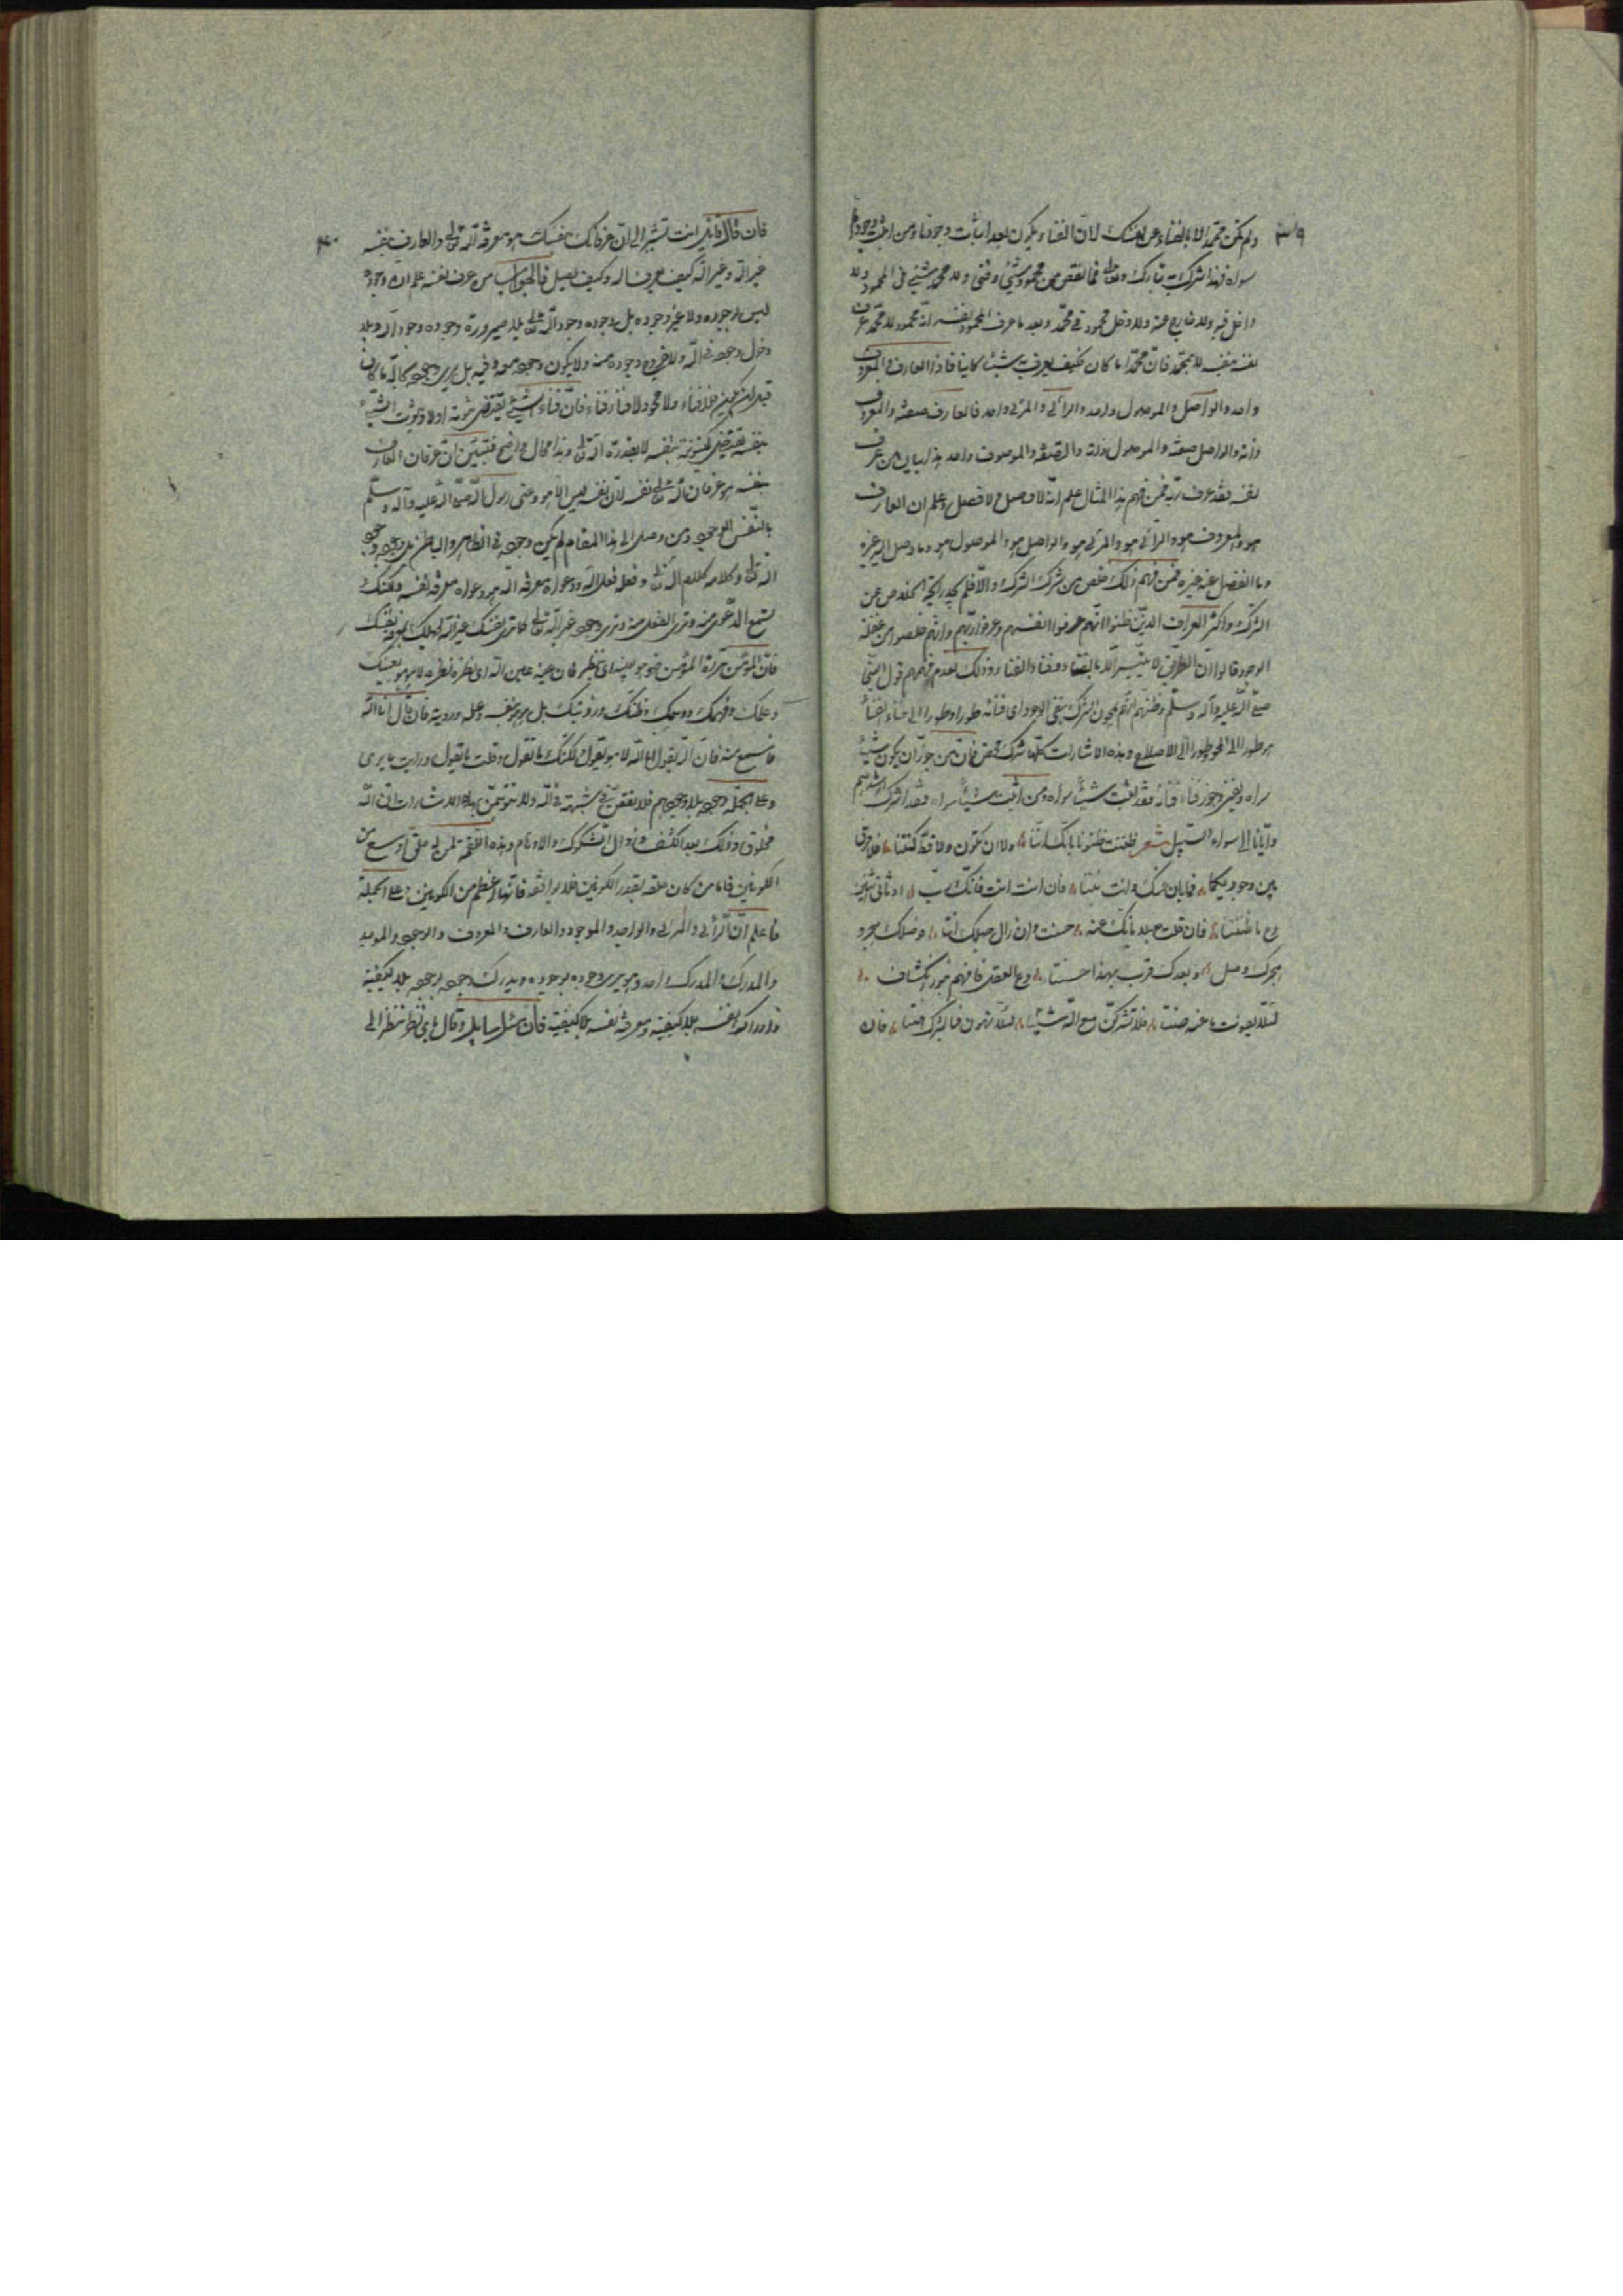 ٣٩
ولم يكن محمّد الا بالفناء عن نفسك لان الفناء يكون بعد اثبات وجودها ومن اثبت وجودا
سواه فهذا شرك به تبارك وتعالى فما نقص من محمود شيئ وفنى ولا محمد شيئ فى المحمود ولا
داخل فيه ولا خارج عنه ولا دخل محمود فى محمّد وبعد ما عرف المحمود نفسه انّه محمود لا محمّد عرف
نفسه بنفسه لا بمحمّد فانّ محمّدا ما كان فكيف يعرف به شيئا كاينا فاذا العارف والمعروف
واحد والواصل والموصول واحد والرّائى والمرئى واحد فالعارف صفته والمعروف
ذاته والواصل صفته والموصول ذاته والصّفة والموصوف واحد هذا بيان من عرف
نفسه فقد عرف ربّه فمن فهم هذا المثال علم انّه لا وصل ولا فصل وعلم ان العارف
هو والمعروف هو والرّائى هو والمرئى هو والواصل هو والموصول هو وما وصل اليه غيره
وما انفصل عنه غيره فمن فهم ذلك خلص من شرك الشرك والّا فلم يجد رايحة الخلاص عن
الشرك واكثر العرّاف الذين ظنّوا انّهم عرفوا انفسهم وعرفوا ربّهم وانّهم خلصوا من غفلة
الوجود قالوا انّ الطريق لا يتيسّر الّا بالفناء وفناء الفناء وذلك لعدم فهمهم قول النّبى
صلّى اللّه عليه وآله وسلّم وظنّهم انّهم يمحون الشرك بنفى الوجود اى فنائه طورا وطورا الى فناء الفناء
وطورا الى المحو وطورا الى الاصطلام وهذه الاشارات كلّها شرك محض فانّ من جوّز ان يكون شيئا
سواه ويفنى وجوّز فناء فنائه فقد اثبت شيئا سواه ومن اثبت شيئا سواه فقد اشرك ارشدهم
وايّانا الى سواء السّبيل شعر ظننت ظنونا بانّك انتا ولا ان تكون ولا قطّ كنتا فلا فرق
بين وجوديكما فما بان عنك ولا عنه بنتا فان انت انت فانّك ربّ وثانى اثنين
دع ما ظننتا فان قلت جهلا بانّك عنه خشنت وان زال جهلك لنتا فوصلك هجر و
هجرك وصل وبعدك قرب بهذا حسنتا دع العقل فافهم بنور انكشاف
لئلّا يفوت ما عنه صنتا فلا تشركنّ مع اللّه شيئا لئلّا تهون فبالشرك هنتا فان
٤٠
فان قال قائل انت تشير الى انّ عرفانك نفسك هو معرفة اللّه تعالى والعارف بنفسه
غير اللّه وغير اللّه كيف يعرف اللّه وكيف يصل فالجواب من عرف نفسه علم ان وجوده
ليس بوجوده ولا غير وجوده بل وجوده وجود اللّه تعالى بلا صيرورة وجوده وجود اللّه وبلا
دخول وجوده فى اللّه ولا خروج وجوده منه ولا يكون وجوده معه وفيه بل يرى وجوده بحاله ما كان
قبل ان يكون فلا فناء ولا محو ولا فناء فناء فانّ فناء الشيئ يقتضى ثبوته اولا وثبوت الشيئ
بنفسه يقتضى كينونته بنفسه لا بقدرة اللّه تعالى وهذا محال واضح فتبيّن انّ عرفان العارف
بنفسه هو عرفان اللّه تعالى نفسه لانّ نفسه ليس الا هو وعنى رسول اللّه صلّى اللّه عليه وآله وسلّم
بالنّفس الوجود ومن وصل الى هذا المقام لم يكن وجوده فى الظاهر والباطن بل وجوده وجود
اللّه تعالى وكلامه كلام اللّه تعالى وفعله فعل اللّه ودعواه معرفة اللّه هو دعواه معرفة نفسه ولكنّك
تسمع الدّعوى منه وترى الفعل منه وترى وجوده غير اللّه تعالى كما ترى نفسك غير اللّه لجهلك بمعرفة نفسك
فانّ المؤمن مرآة المؤمن فهو هو بعينه اى بنظره فان عينه عين اللّه اى نظره نظره لا هو هو بعينك
وعلمك وفهمك ووهمك وظنّك ورؤيتك بل هو هو بنفسه وعلمه ورؤيته فان قال انا اللّه
فاسمع منه فانّ اللّه يقول انا اللّه لا هو يقول ولكنّك ما تقول وقلت ما يقول ورايت ما يرى
وعلى الجملة وجوده بلا وجودهم فلا تقعنّ فى شبهة فى اللّه ولا تتوهّمنّ بهذه الاشارات انّ اللّه
مخلوق وذلك بعد الكشف وزوال الشكوك والاوهام وهذه اللقمة لمن له حلق اوسع من
الكونين فامّا من كان حلقه بقدر الكونين فلا يوافقه فانّها اعظم من الكونين وعلى الجملة
فاعلم انّ الرّائى والمرئى والواجد والموجود والعارف والمعروف والموجد والموجد
والمدرك والمدرك واحد وهو يرى وجوده بوجوده ويدرك وجوده بوجوده بلا كيفية
وادراكه نفسه بلا كيفية ومعرفة نفسه بلا كيفية فان سئل سايل وقال باىّ نظر ننظر الى